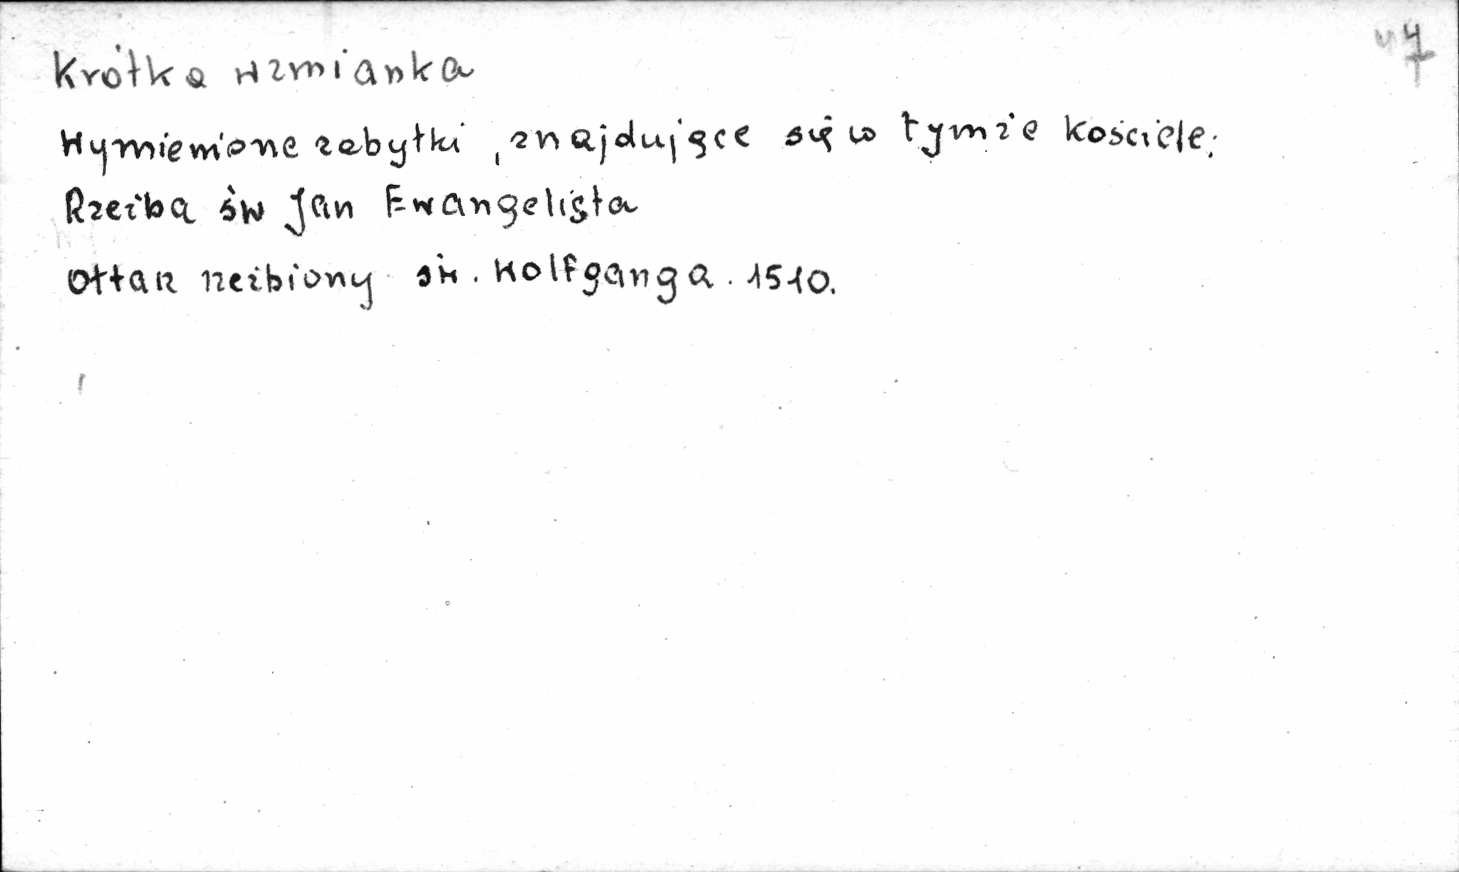 Krótka wzmianka
Wymienione zabytki, znajdujące się w tymże kościele:
Rzeźba św Jan Ewangelista
Ołtarz rzeźbiony św. Wolfganga. 1510.